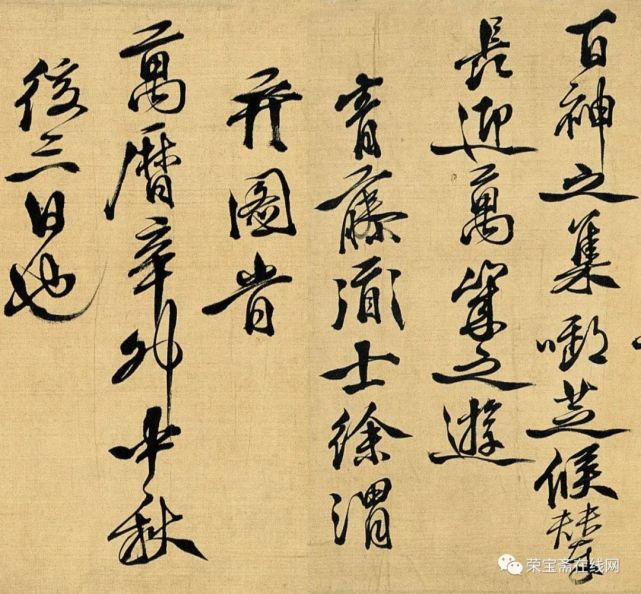 百神之集啣芝候輦
長迎萬歲之遊
青藤道士徐渭
并圖旹
萬曆辛卯中秋
後三日也
荣宝斋在线网